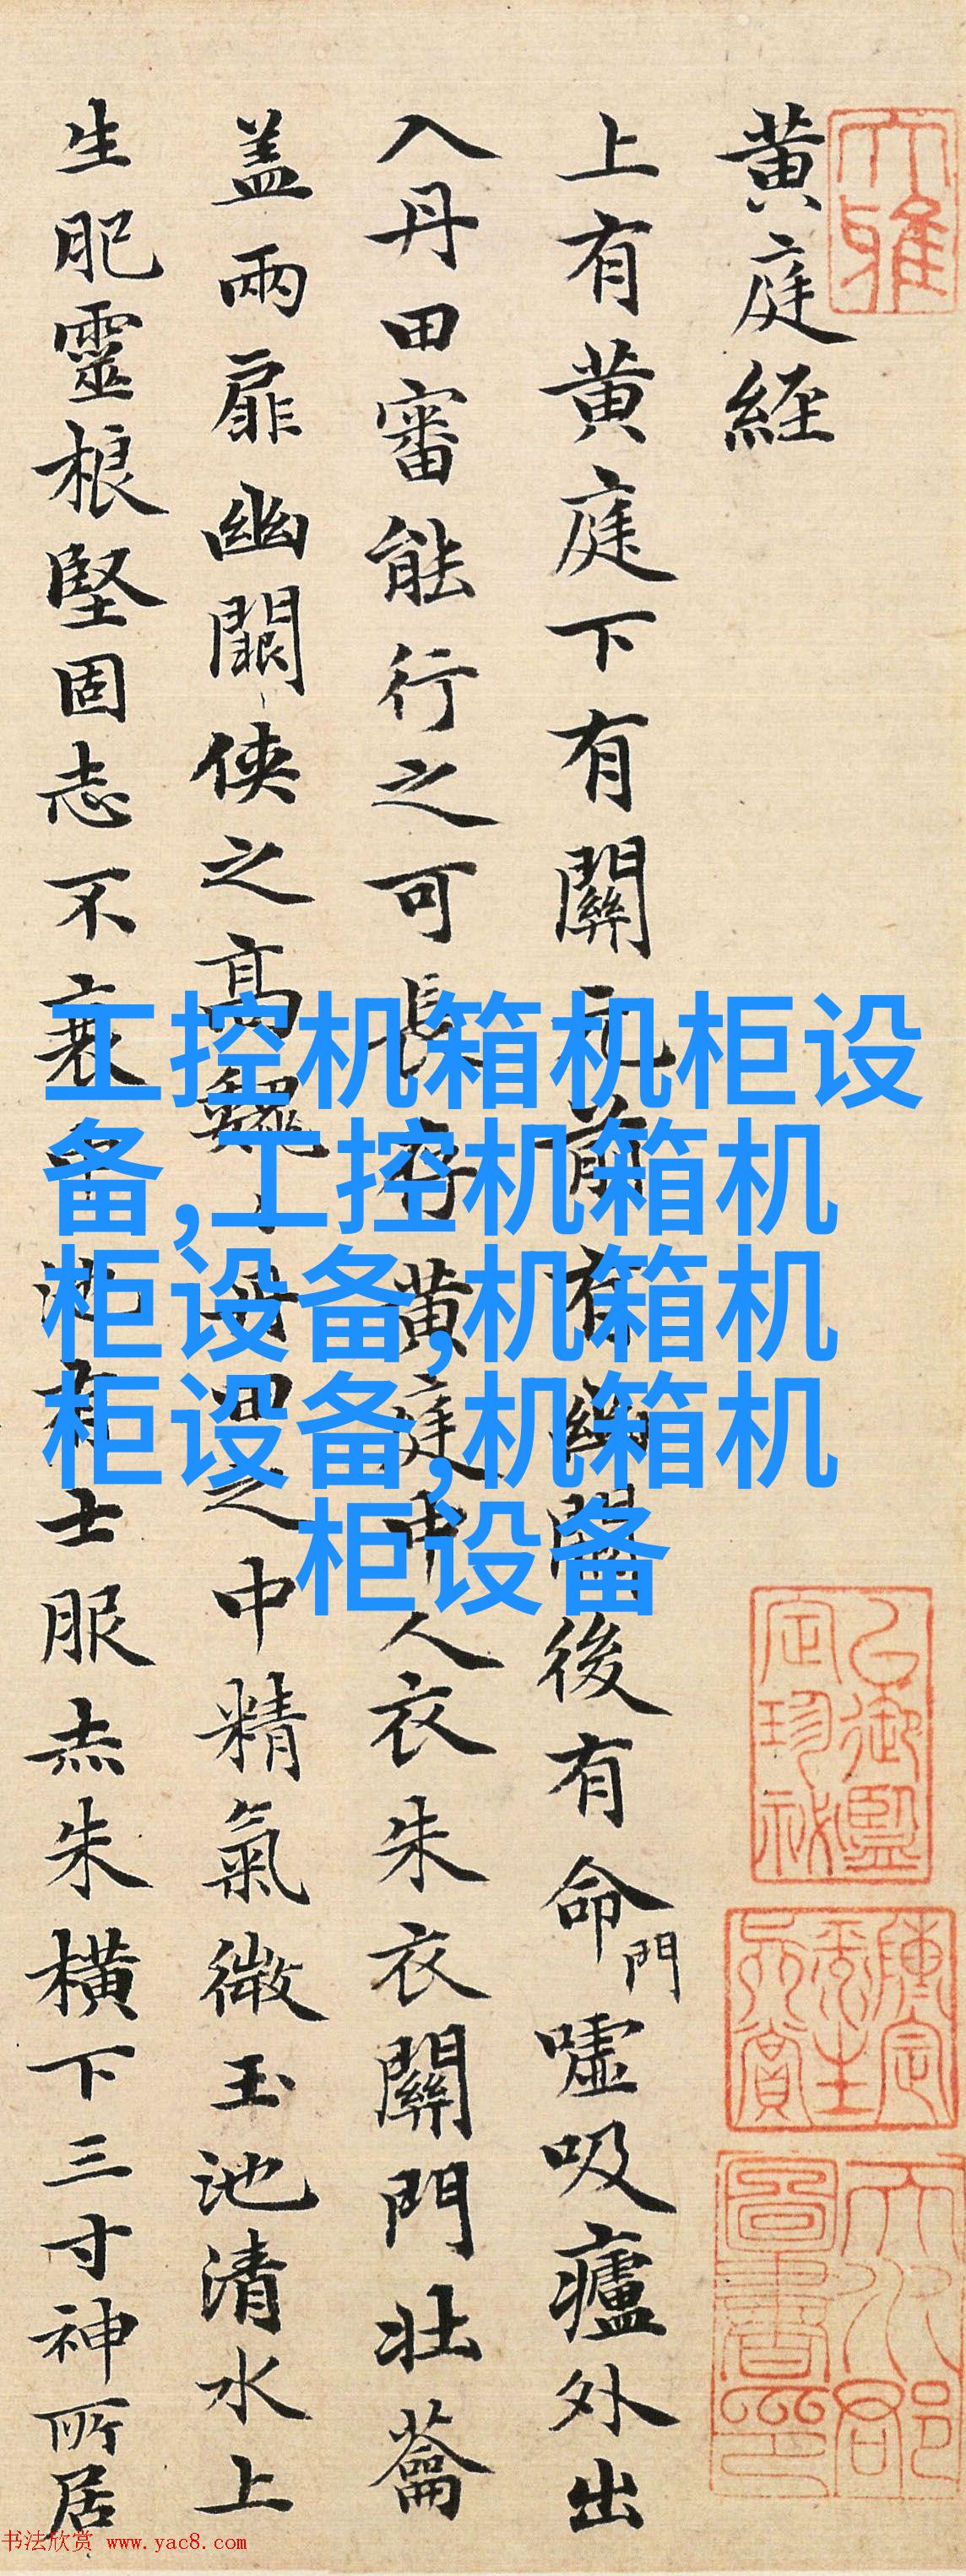 大雅
黄庭経
上有黄庭下有關元前有幽闕後有命門嘘吸廬外出
入丹田審能行之可長存黄庭中人衣朱衣關門壯蘥
盖兩扉幽闕俠之高巍丹田之中精氣微玉池清水上
生肥靈根堅固志不衰中池有士服赤朱橫下三寸神所居
工控机箱机柜设
备,工控机箱机
柜设备,机箱机
柜设备,机箱机
柜设备
书法欣赏 www.yac8.com